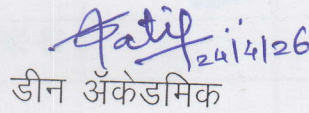 Patil
24/4/26
डीन ॲकेडमिक